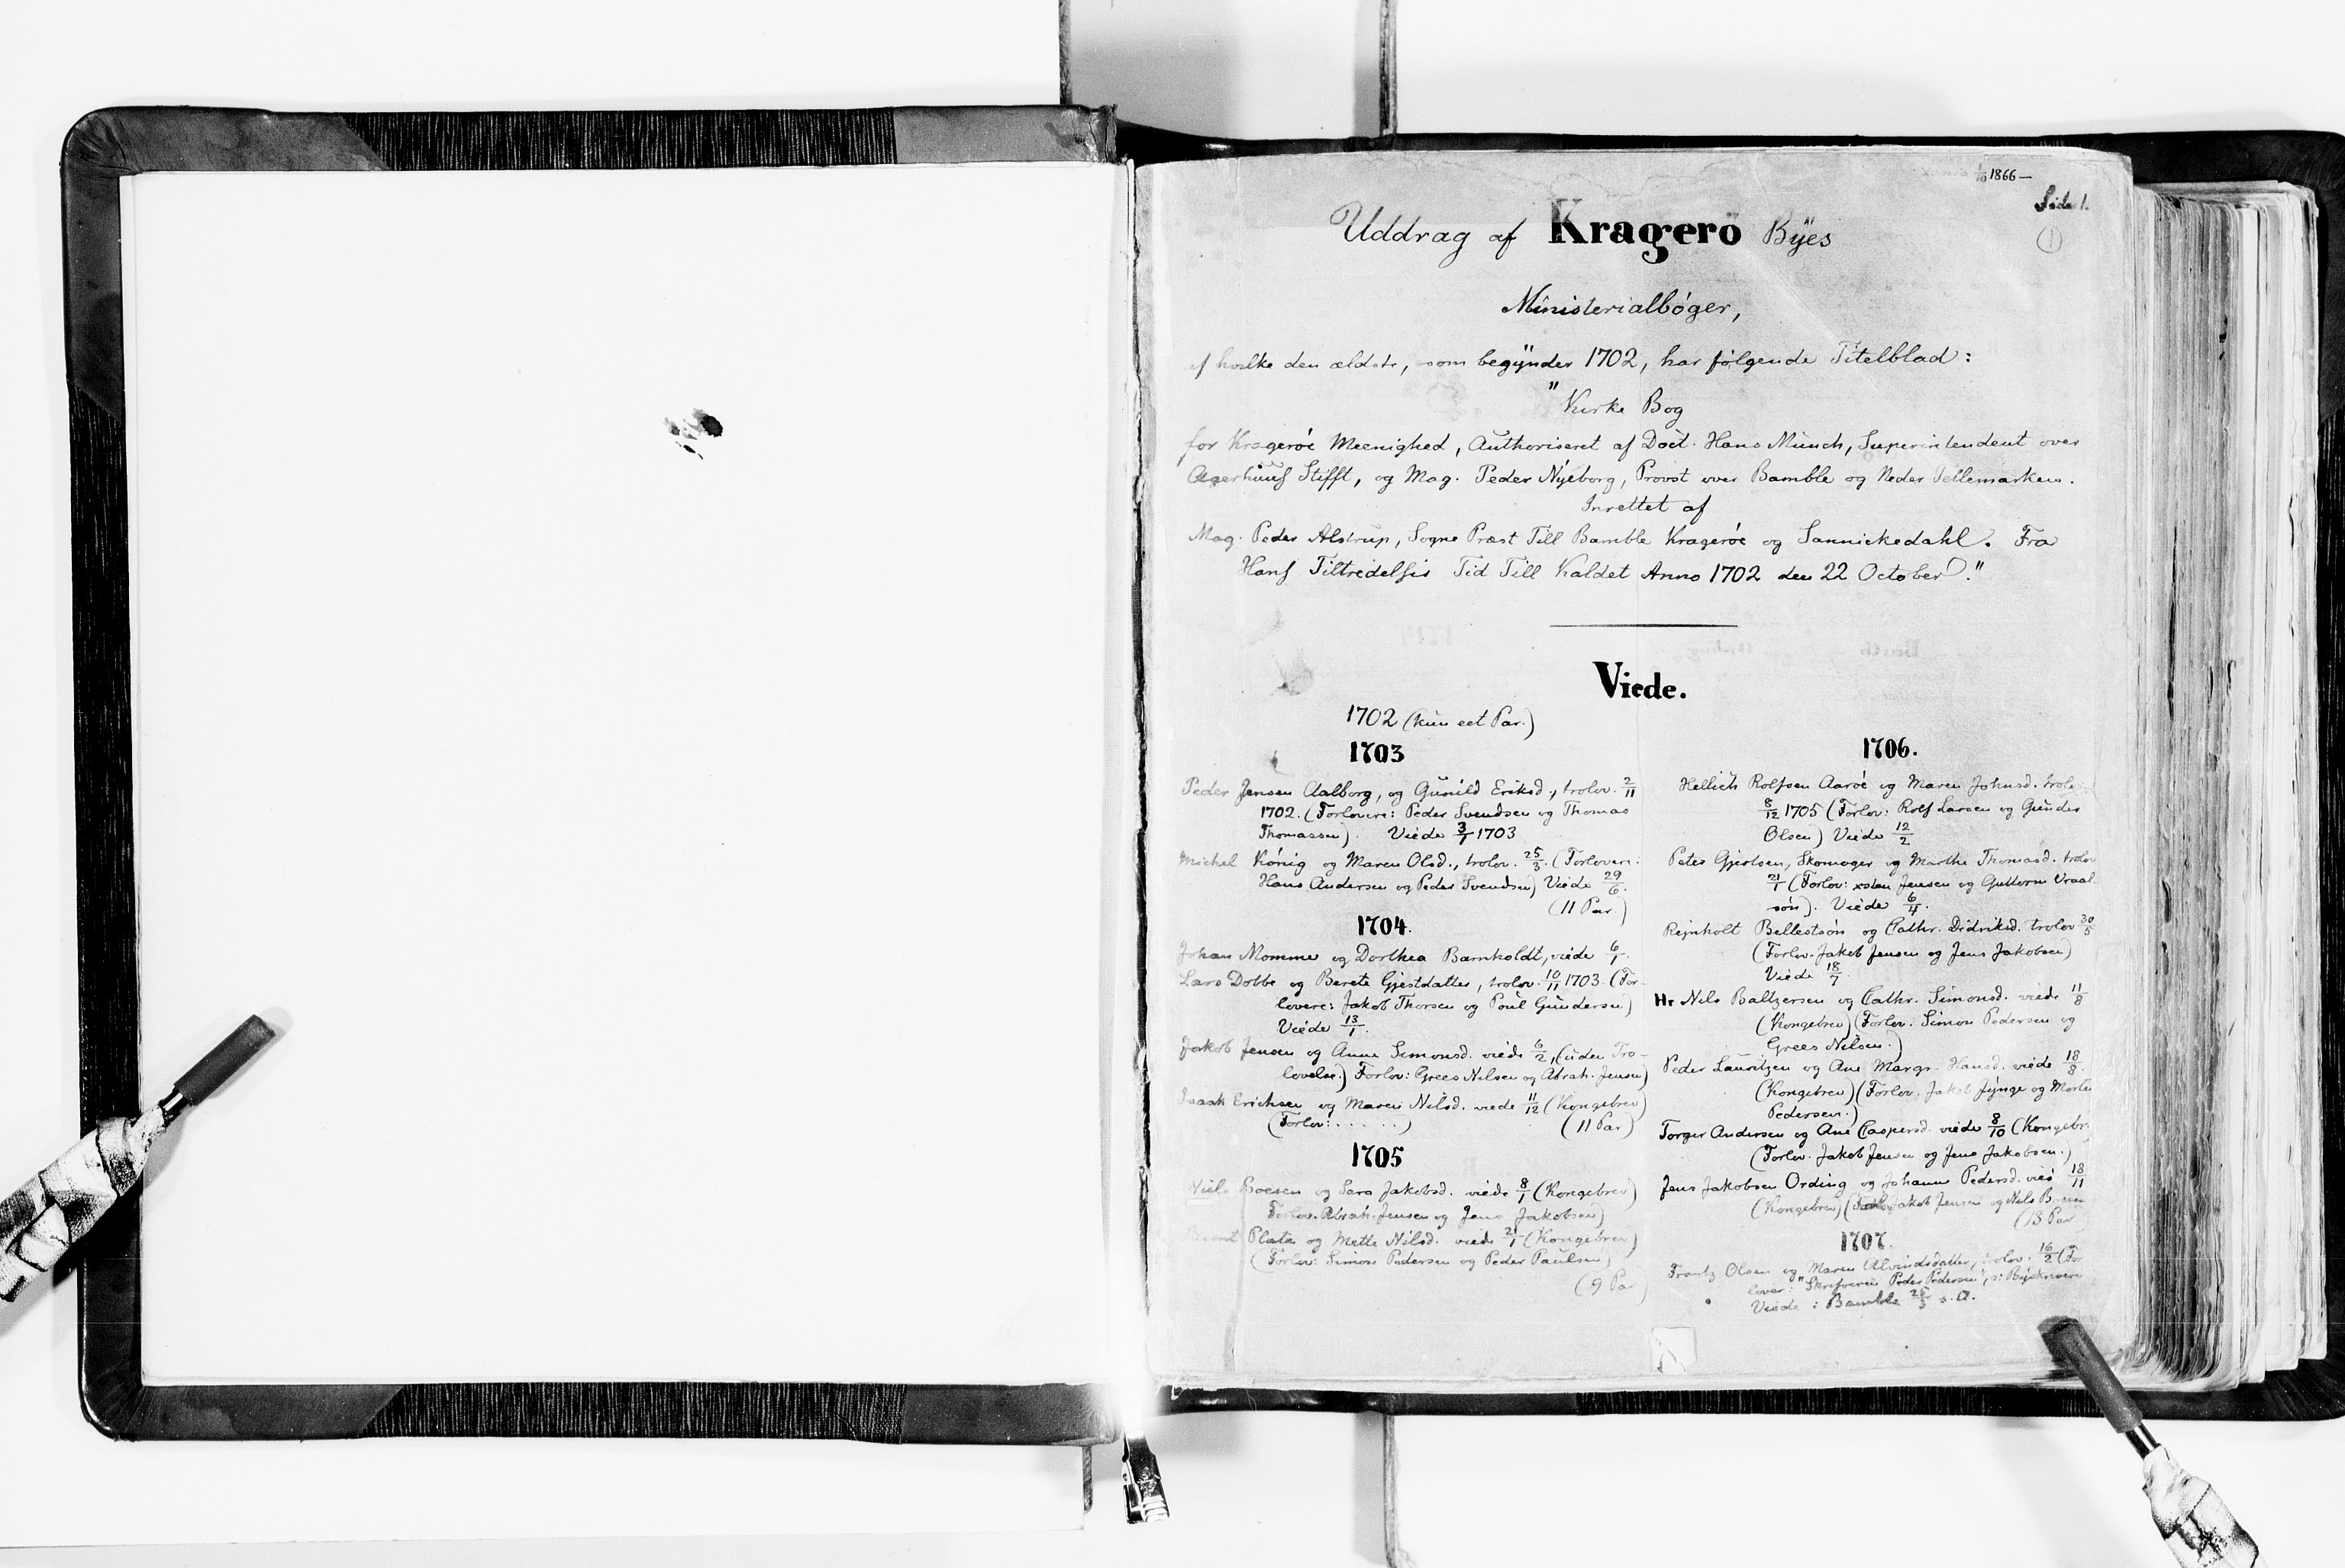 1/10 1866 —
Side 1.
1
Uddrag af Kragerö Byes
Ministerialbøger,
af hvilke den ældste, som begynder 1702, har følgende Titelblad:
"Kirke Bog
for Kragerøe Meenighed, Authoriseret af Doct. Hans Munch, Superintendent over
Agerhuus Stifft, og Mag. Peder Nyeborg, Provst over Bamble og Neder Tellemarken.
Inrettet af
Mag. Peder Alstrup, Sogne Præst Till Bamble Kragerøe og Sannickedahl. Fra
Hans Tiltredelsis Tid Till Kaldet Anno 1702 den 22 October."
Viede.
1702 (kun eet Par.)
1703
Peder Jensen Aalborg, og Gunild Eriksd., trolov. 2/11
1702. (Forlovere: Peder Svendsen og Thomas
Thomassen). Viede 3/1 1703
Michel König og Maren Olsd., trolov. 25/3. (Forlovere:
Hans Andersen og Peder Svendsen) Viede 29/6.
(11 Par.)
1704.
Johan Momme og Dorthea Barnholdt, viede 6/1.
Lars Dobbe og Berete Gjestdatter, trolov. 10/11 1703. (For-
lovere: Jakob Thorsen og Poul Gundersen)
Viede 13/1.
Jakob Jensen og Anne Simonsd. viede 6/2, (uden Tro-
lovelse.) Forlov: Grees Nilsen og Abrah. Jensen)
Isaak Erichsen og Maren Nilsd. viede 11/12 (Kongebrev)
(Forlov: . . . . . .) (11 Par)
1705
Niels Boesen og Sara Jakobsd. viede 8/1 (Kongebrev)
Forlov. Abrah. Jensen og Jens Jakobsen)
Plate og Mette Nilsd. viede 21/1 (Kongebrev)
(Forlov: Simon Pedersen og Peder Paulsen)
(9 Par)
1706.
Hellich Rolfsen Aarøe og Maren Johnsd. trolov
8/12 1705 (Forlov: Rolf Larsen og Gunder
Olsen) Viede 12/2
Peter Gjertsen, Skomager og Marthe Thomasd. trolov
21/1 (Forlov: xsten Jensen og Guttorm Vraal-
søn). Viede 6/4.
Rejnholt Bellestsøn og Cathr. Didriksd. trolov 30/5
(Forlov. Jakob Jensen og Jens Jakobsen)
Viede 18/7
Hr Nils Baltzersen og Cathr. Simonsd. viede 11/8
(Kongebrev) (Forlov. Simon Pedersen og
Grees Nilsen.)
Peder Lauritzen og Ane Margr. Hansd. viede 18/8.
(Kongebrev) (Forlov. Jakob Jynge og Morten
Pedersen.)
Torger Andersen og Ane Caspersd. viede 8/10 (Kongebr.
(Forlov. Jakob Jensen og Jens Jakobsen.)
Jens Jakobsen Ording og Johanne Pedersd. vied 18/11
(Kongebrev) (Forlov Jakob Jensen og Nils Boesen
(13 Par
1707.
Frantz Olsen og Maren Alvindsdatter, trolov. 16/2 (For
lover: "Skrifveren Peder Pedersen", s: Byskriveren
Viede i Bamble 25/3 s. A.